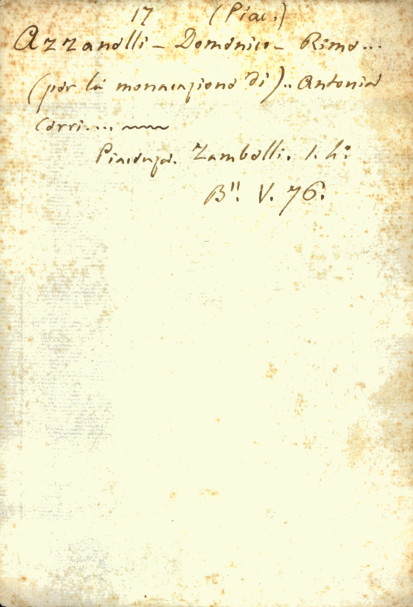 17 (Piac.)
Azzanelli - Domenico - Rime...
(per la monacazione di).. Antonia
Cerri...
Piacenza. Zambelli. 1. h.°
B". V. 76.